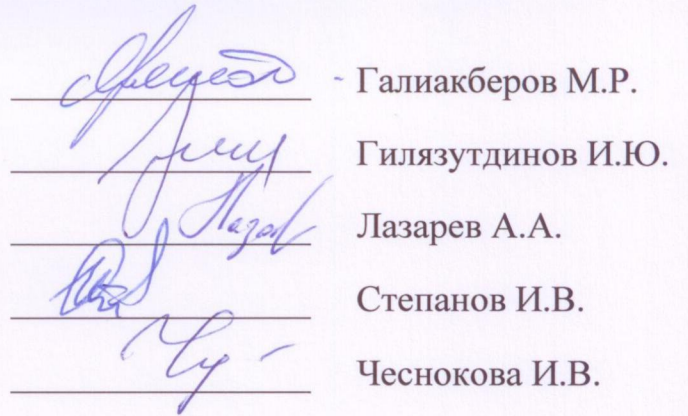 - Галиакберов М.Р.
Гилязутдинов И.Ю.
Лазарев А.А.
Степанов И.В.
Чеснокова И.В.